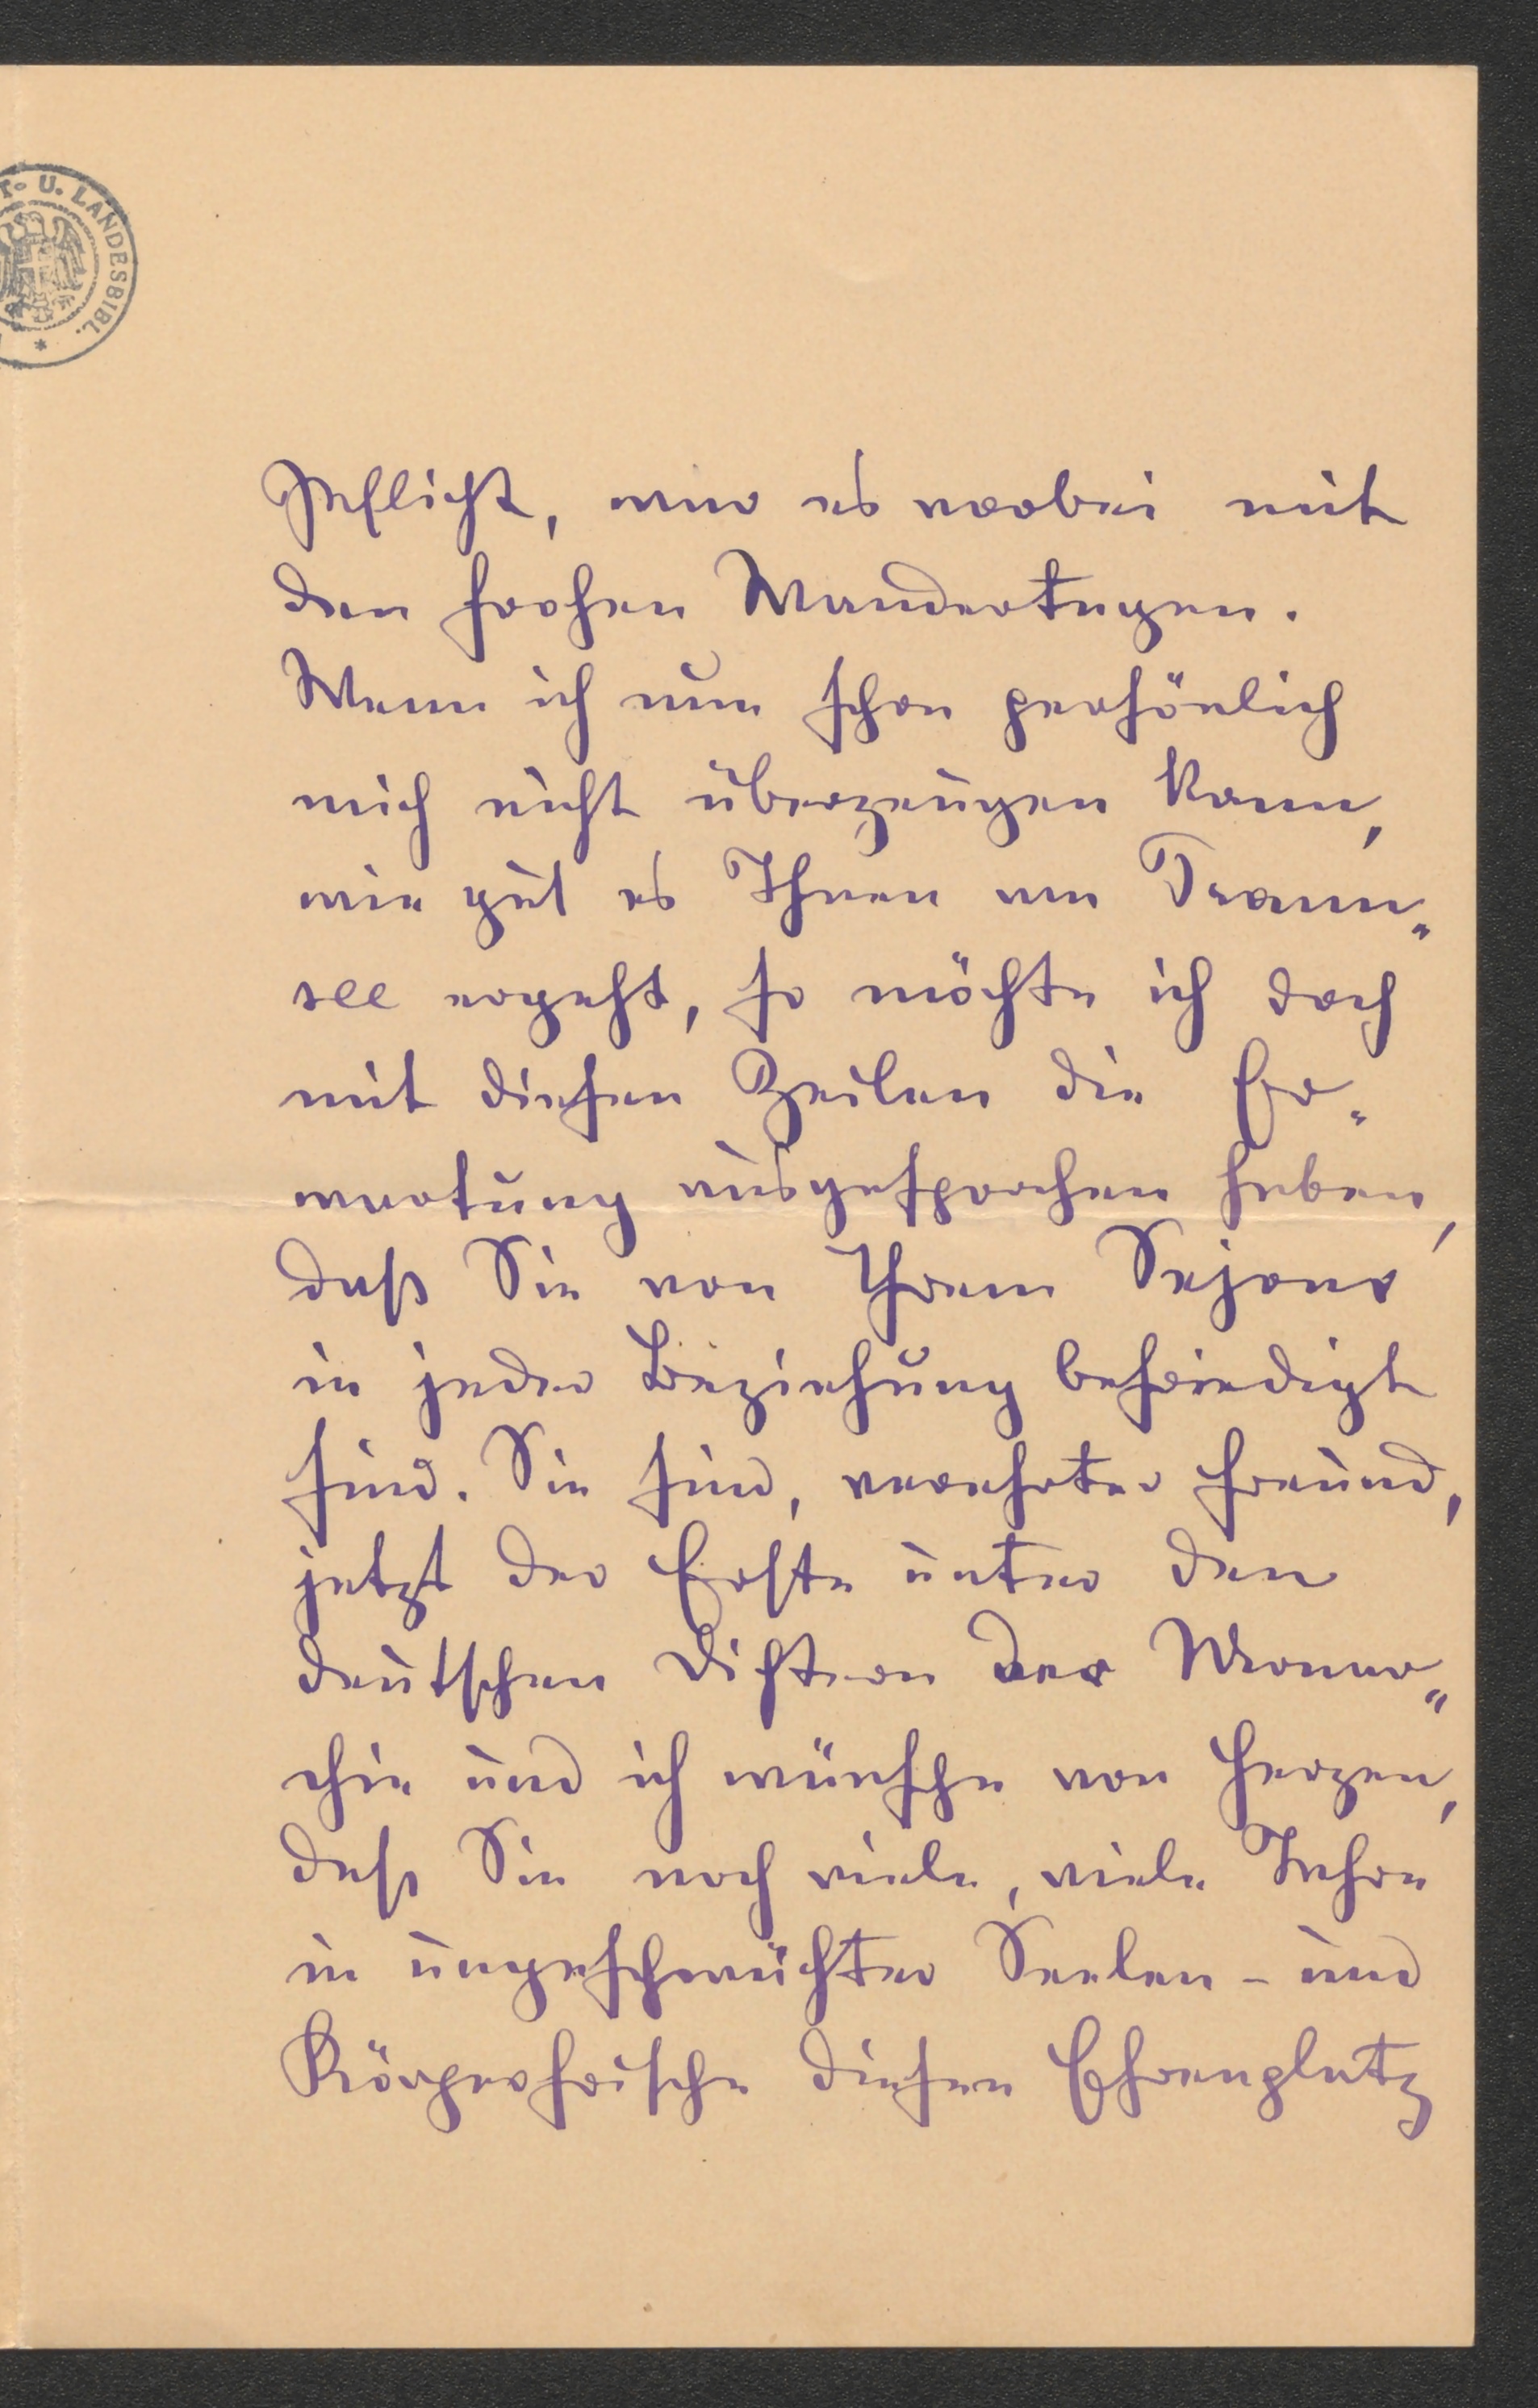 T- U. LANDESBIBL. *
Pflicht, war es vorbei mit
den frohen Wandertagen.
Wenn ich nun schon persönlich
mich nicht überzeugen kann,
wie gut es Ihnen am Traun„
see ergeht, so möchte ich doch
mit diesen Zeilen die Er„
wartung ausgesprochen haben,
daß Sie von Ihrem Sejour
in jeder Beziehung befriedigt
sind. Sie sind, verehrter Freund,
jetzt der Erste unter den
deutschen Dichtern der Monar„
chie und ich wünsche von Herzen,
daß Sie noch viele, viele Jahre
in ungeschwächter Seelen- und
Körperfrische diesen Ehrenplatz